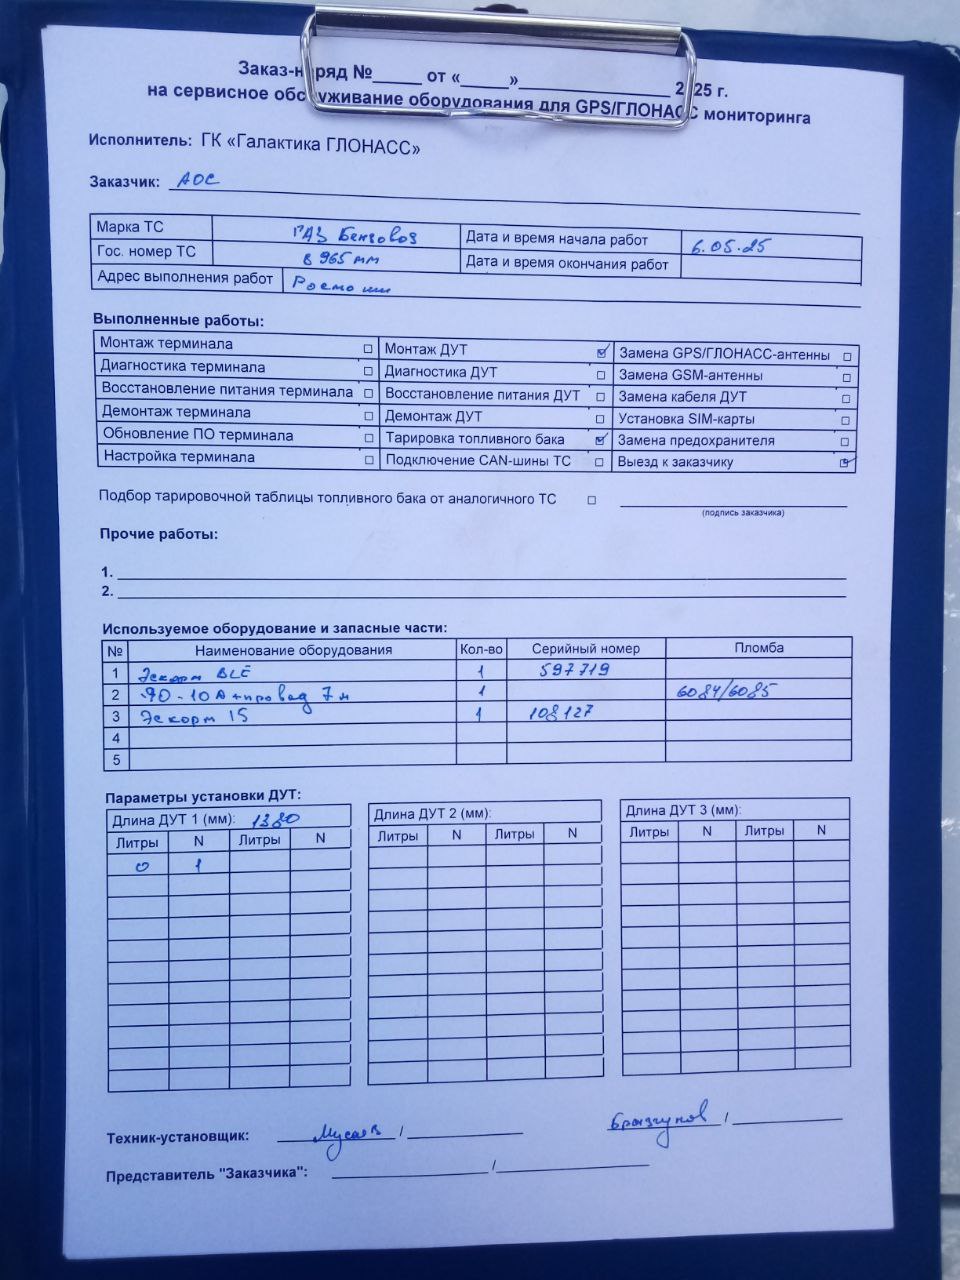 Заказ-наряд №_____ от «_____»________________ 2025 г.
на сервисное обслуживание оборудования для GPS/ГЛОНАСС мониторинга
Исполнитель: ГК «Галактика ГЛОНАСС»
Заказчик: АОС
Марка ТС ГАЗ Бензовоз Дата и время начала работ 6.05.25
Гос. номер ТС в 965 мм Дата и время окончания работ
Адрес выполнения работ
Выполненные работы:
Монтаж терминала ☐ Монтаж ДУТ ☑ Замена GPS/ГЛОНАСС-антенны ☐
Диагностика терминала ☐ Диагностика ДУТ ☐ Замена GSM-антенны ☐
Восстановление питания терминала ☐ Восстановление питания ДУТ ☐ Замена кабеля ДУТ ☐
Демонтаж терминала ☐ Демонтаж ДУТ ☐ Установка SIM-карты ☐
Обновление ПО терминала ☐ Тарировка топливного бака ☑ Замена предохранителя ☐
Настройка терминала ☐ Подключение CAN-шины ТС ☐ Выезд к заказчику ☑
Подбор тарировочной таблицы топливного бака от аналогичного ТС ☐
(подпись заказчика)
Прочие работы:
1.
2.
Используемое оборудование и запасные части:
№ Наименование оборудования Кол-во Серийный номер Пломба
1 Эскорт BLE 1 597719
2 -10А+провод 7м 1 6084/6085
3 Эскорт IS 1 108127
4
5
Параметры установки ДУТ:
Длина ДУТ 1 (мм): 1380 Длина ДУТ 2 (мм): Длина ДУТ 3 (мм):
Литры N Литры N Литры N Литры N Литры N Литры N
0 1
Техник-установщик: Мусаев / Брызгунов /
Представитель "Заказчика": /